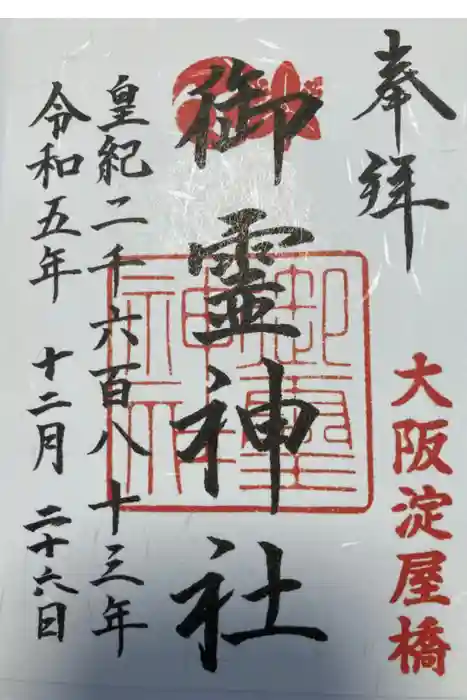 奉拝
大阪淀屋橋
御霊神社
皇紀二千六百八十三年
令和五年 十二月 二十六日